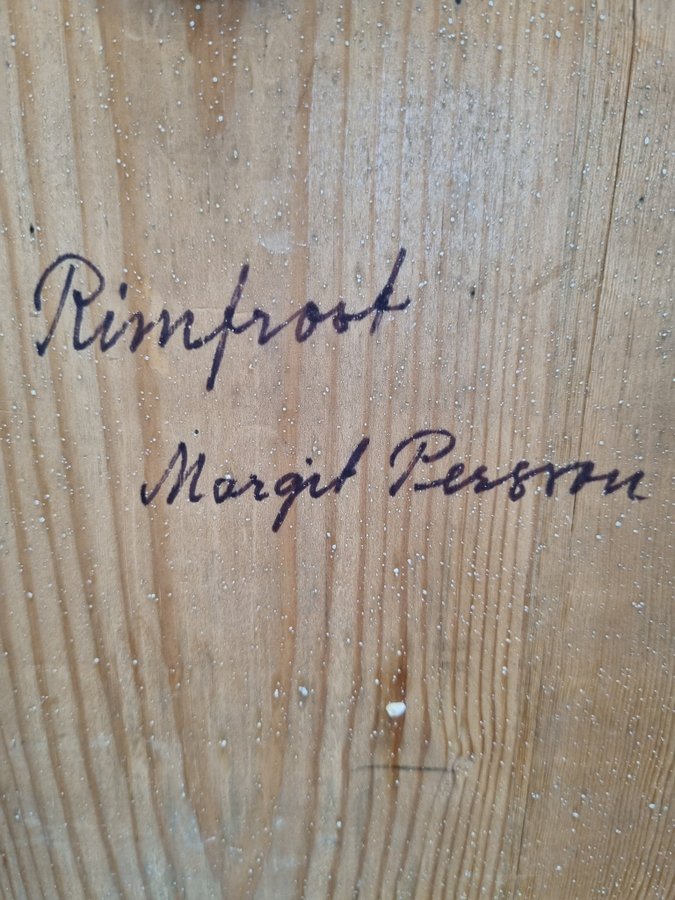 Rimfrost
Margit Persson